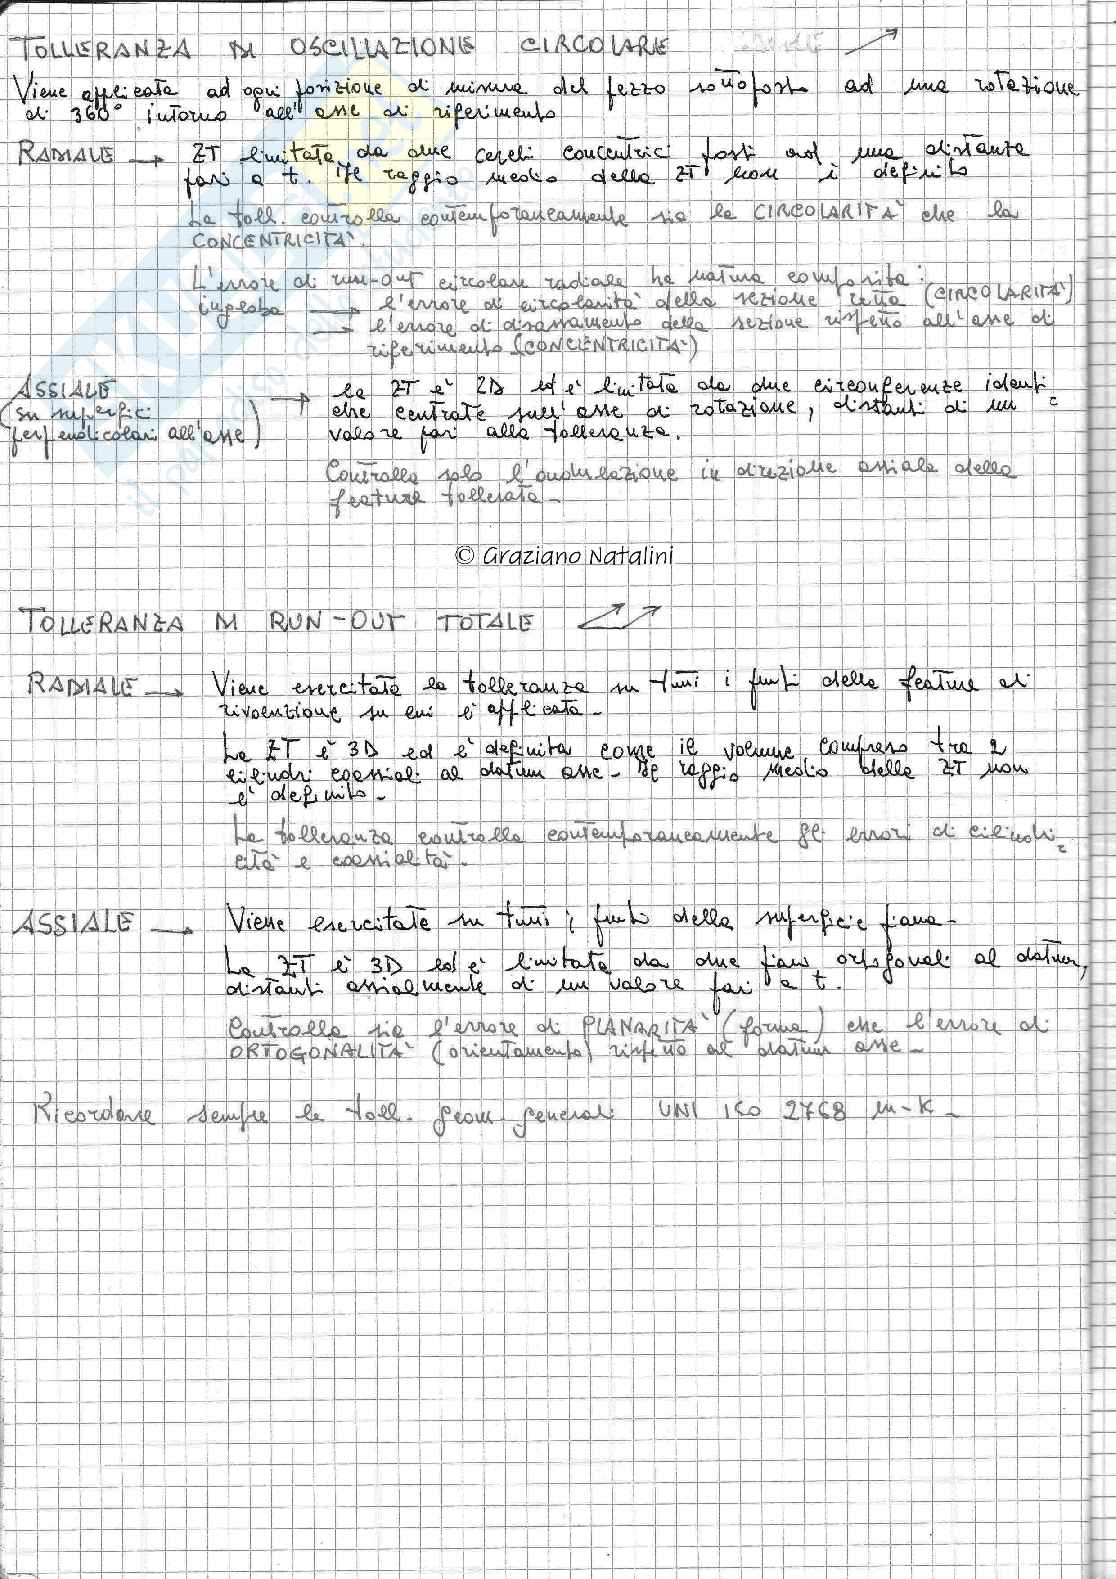 TOLLERANZA DI OSCILLAZIONE CIRCOLARE
Viene applicata ad ogni posizione di misura del pezzo sottoposto ad una rotazione
di 360° intorno all'asse di riferimento
RADIALE → ZT limitata da due cerchi concentrici posti ad una distanza
pari a t. Il raggio medio della ZT non è definito
La toll. controlla contemporaneamente sia la CIRCOLARITÀ che la
CONCENTRICITÀ.
L'errore di run-out circolare radiale ha natura composita:
ingloba → l'errore di circolarità della sezione retta (CIRCOLARITÀ)
→ l'errore di disassamento della sezione rispetto all'asse di
riferimento (CONCENTRICITÀ)
ASSIALE → la ZT è 2D ed è limitata da due circonferenze identi
(su superfici che centrate sull'asse di rotazione, distanti di un
perpendicolari all'asse) valore pari alla tolleranza.
Controlla solo l'ondulazione in direzione assiale della
feature tollerata -
© Graziano Natalini
TOLLERANZA DI RUN-OUT TOTALE
RADIALE → Viene esercitata la tolleranza su tutti i punti della feature di
rivoluzione su cui è applicata -
La ZT è 3D ed è definita come il volume compreso tra 2
cilindri coassiali al datum asse - Il raggio medio della ZT non
è definito -
La tolleranza controlla contemporaneamente gli errori di cilindri
cità e coassialità.
ASSIALE → Viene esercitata su tutti i punti della superficie piana -
La ZT è 3D ed è limitata da due piani ortogonali al datum,
distanti assialmente di un valore pari a t.
Controlla sia l'errore di PLANARITÀ (forma) che l'errore di
ORTOGONALITÀ (orientamento) rispetto al datum asse -
Ricordare sempre le toll. geom. generali UNI ISO 2768 m-K -